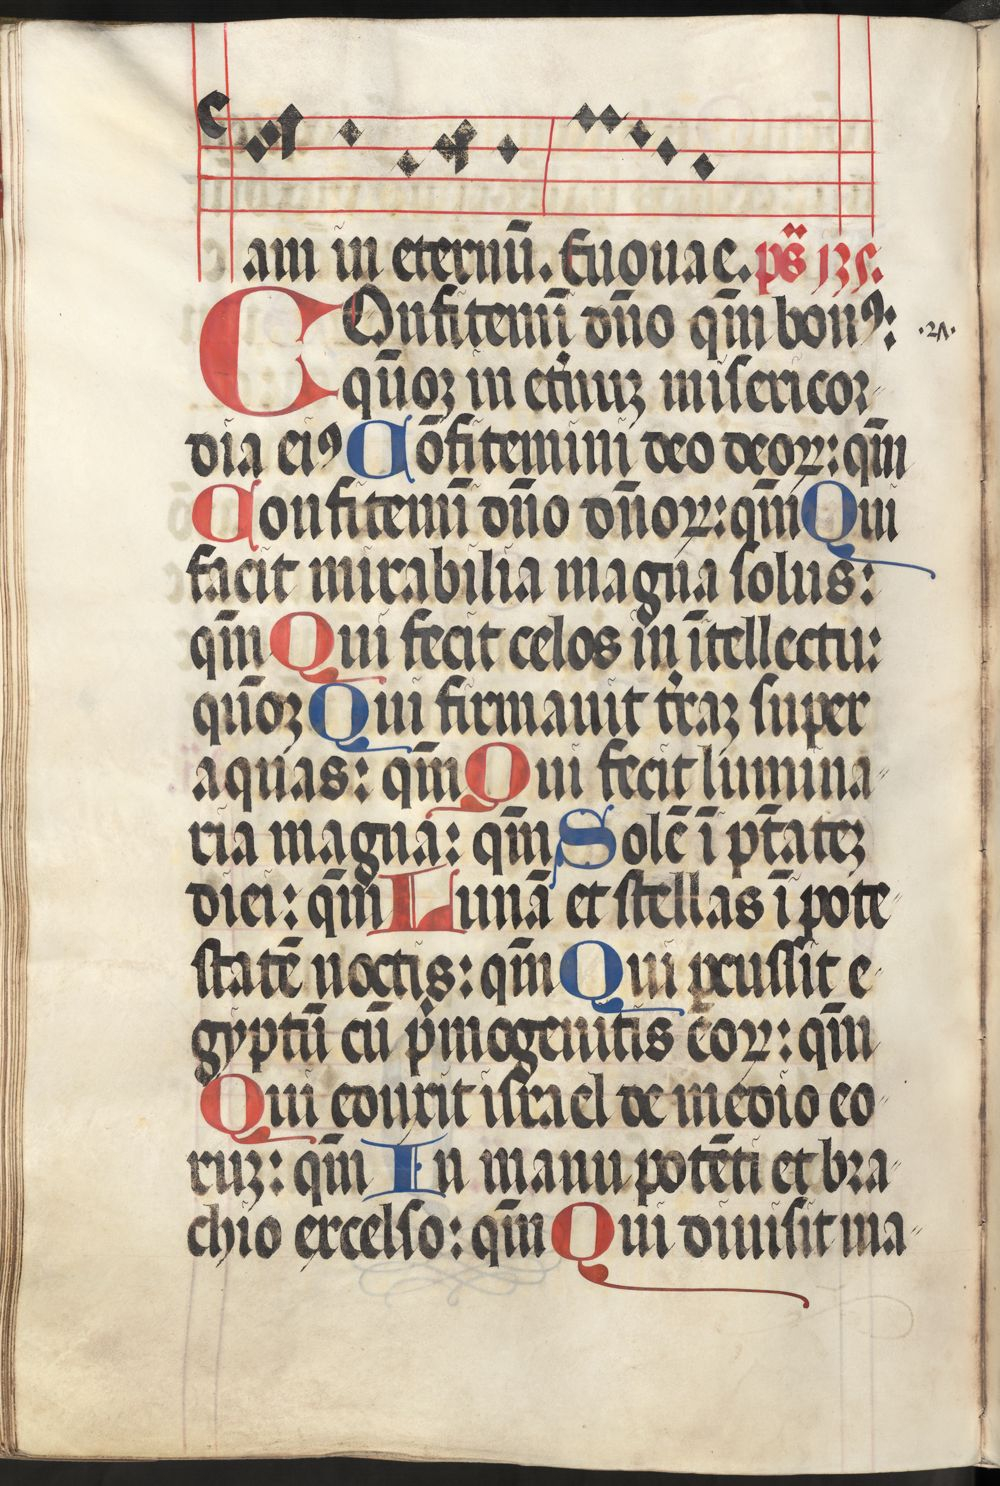 am in eternū. Euouae. pš 135.
COnfitemī dño qm̄ bonꝰ: ·2Λ·
qūoꝫ in et̄nuꝫ misericor
dia eiꝰ Cōfitemini deo deoꝝ: qm̄
Confitemī dño dn̄oꝝ: qm̄ Qui
facit mirabilia magna solus:
qm̄ Qui fecit celos in ītellectu:
qūoꝫ Qui firmauit t̄raꝫ super
aquas: qm̄ Qui fecit lumina
ria magna: qm̄ Solē ī pt̄ateꝫ
diei: qm̄ Lunā et stellas ī pote
statē noctis: qm̄ Qui ꝑcussit e
gyptū cū pͥmogenitis eoꝝ: qm̄
Qui eduxit israel de medio eo
ruꝫ: qm̄ In manu potēti et bra
chio excelso: qm̄ Qui diuisit ma